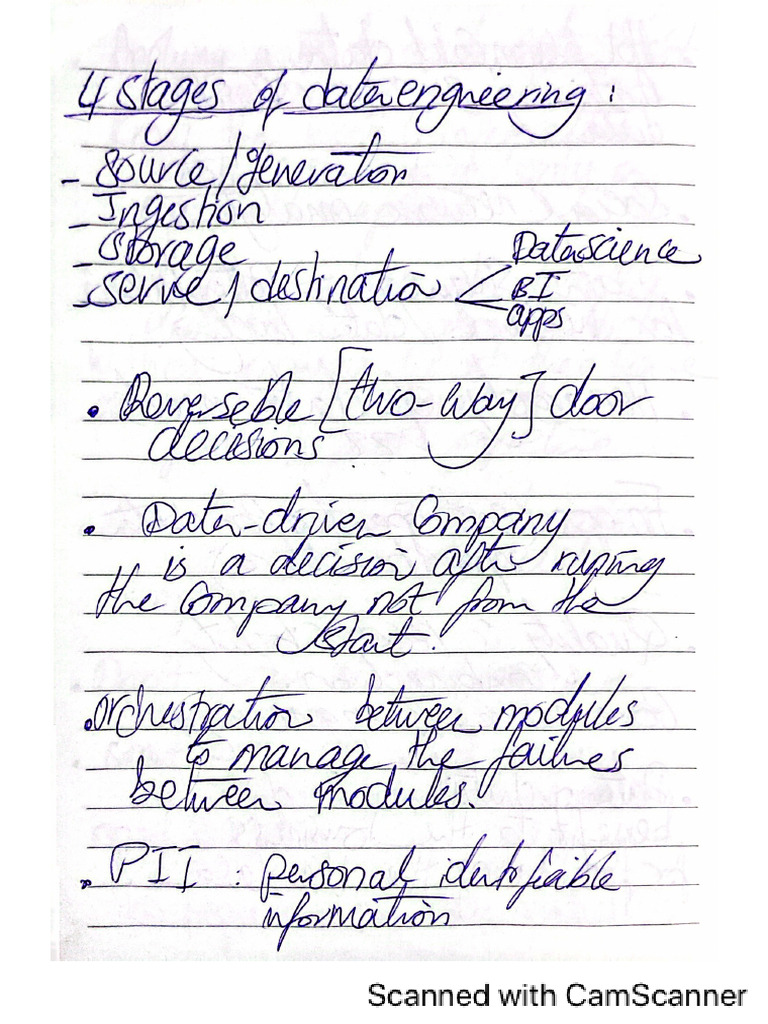 4 stages of data engineering :
- Source / generation
- Ingestion
- Storage
- serve / destination < Data science
BI
apps
• Reverseble [two-way] door
decisions
• Data-driven Company
is a decision after
the Company not from the
Start.
• orchestration between modules
to manage the failures
between modules.
• PII : personal identifiable
information
Scanned with CamScanner